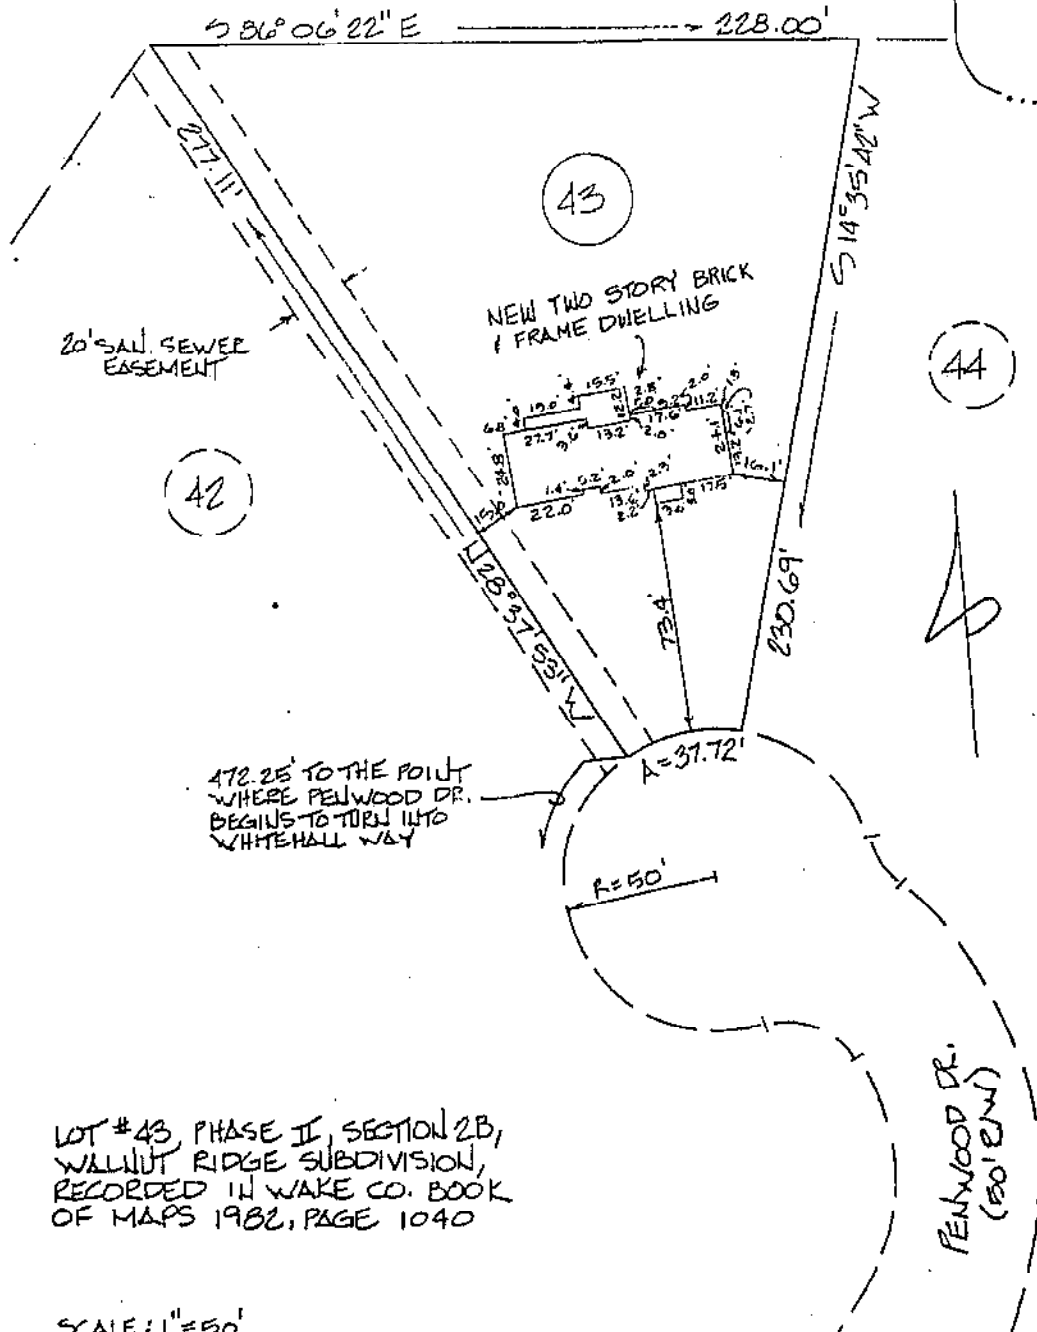 S 86° 06' 22" E 228.00'
277.11'
43
S 14° 35' 42" W
NEW TWO STORY BRICK
& FRAME DWELLING
20' SAN. SEWER
EASEMENT
44
15.5'
2.8'
2.0'
19.0'
12.2
9.2'
11.2'
6.8'
17.6'
27.7'
3.6'
13.2'
2.0'
24.1'
24.8'
13.2'
16.1'
42
1.4'
5.2'
2.0'
2.3'
15.6'
22.0'
13.6'
2.2'
17.5'
N 28° 37' 53" W
73.4'
230.69'
A=37.72'
472.25' TO THE POINT
WHERE PENWOOD DR.
BEGINS TO TURN INTO
WHITEHALL WAY
R=50'
PENWOOD DR.
(50' R/W)
LOT #43, PHASE II, SECTION 2B,
WALNUT RIDGE SUBDIVISION,
RECORDED IN WAKE CO. BOOK
OF MAPS 1982, PAGE 1040
SCALE: 1"=50'